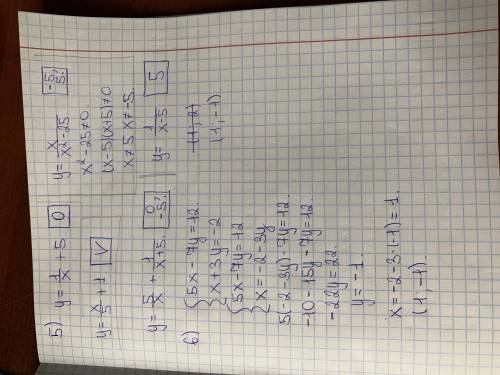 5) y = 1/x + 5 [0]
y = x/5 + 1 [V]
y = 5/x + 1/(x+5). [0; -5!]
y = x/(x²-25) [-5; 5!]
x² - 25 ≠ 0.
(x-5)(x+5) ≠ 0
x ≠ 5 x ≠ -5.
y = 1/(x-5) [5]
6) { 5x - 7y = 12.
x + 3y = -2
{ 5x - 7y = 12
x = -2 - 3y
5(-2 - 3y) - 7y = 12.
-10 - 15y - 7y = 12.
-22y = 22.
y = -1.
x = -2 - 3·(-1) = 1.
(1, -1).
(1; 2)
(1; -1)